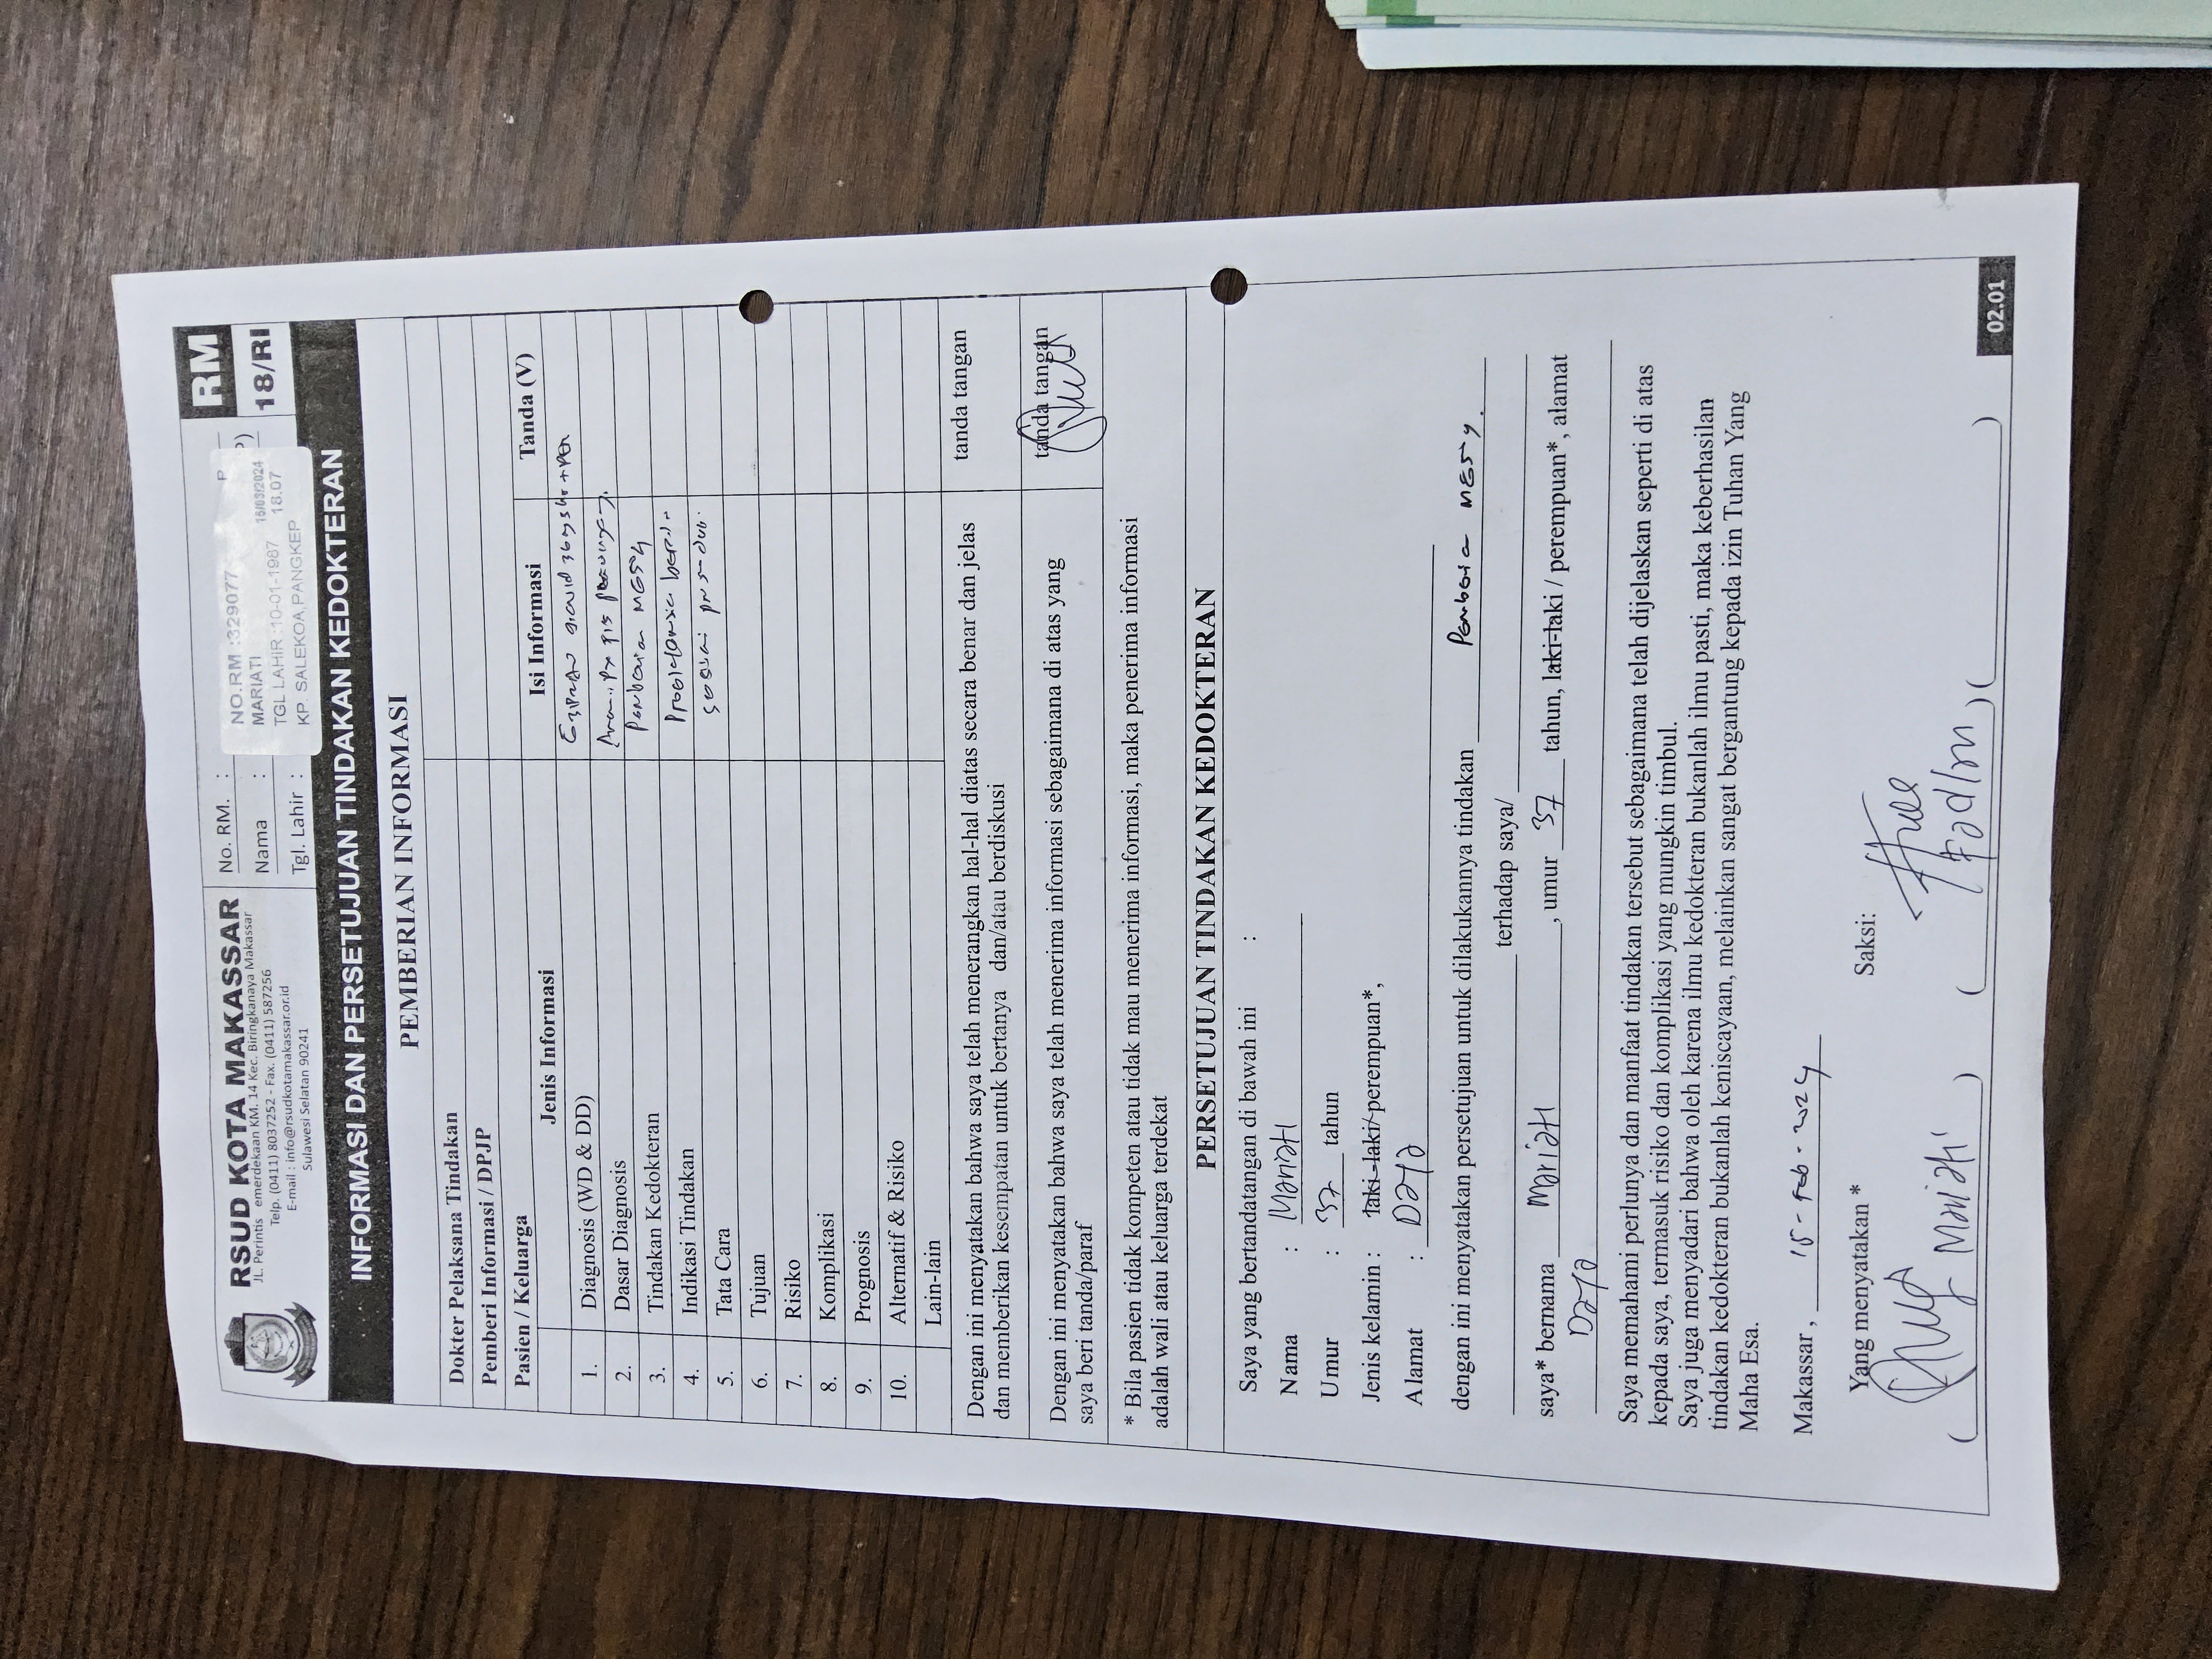 RSUD KOTA MAKASSAR
JL. Perintis emerdekaan KM. 14 Kec. Biringkanaya Makassar
Telp. (0411) 8037252 - Fax. (0411) 587256
E-mail : info@rsudkotamakassar.or.id
Sulawesi Selatan 90241
No. RM. :
Nama :
Tgl. Lahir :
NO.RM :329077 P
MARIATI 15/03/2024
TGL LAHIR :10-01-1987 18.07
KP. SALEKOA,PANGKEP
P)
RM
18/RI
INFORMASI DAN PERSETUJUAN TINDAKAN KEDOKTERAN
PEMBERIAN INFORMASI
Dokter Pelaksana Tindakan
Pemberi Informasi / DPJP
Pasien / Keluarga
Jenis Informasi Isi Informasi Tanda (V)
1. Diagnosis (WD & DD)
2. Dasar Diagnosis
3. Tindakan Kedokteran
4. Indikasi Tindakan
5. Tata Cara sesuai
6. Tujuan
7. Risiko
8. Komplikasi
9. Prognosis
10. Alternatif & Risiko
Lain-lain
Dengan ini menyatakan bahwa saya telah menerangkan hal-hal diatas secara benar dan jelas
dan memberikan kesempatan untuk bertanya dan/atau berdiskusi
tanda tangan
Dengan ini menyatakan bahwa saya telah menerima informasi sebagaimana di atas yang
saya beri tanda/paraf
tanda tangan
* Bila pasien tidak kompeten atau tidak mau menerima informasi, maka penerima informasi
adalah wali atau keluarga terdekat
PERSETUJUAN TINDAKAN KEDOKTERAN
Saya yang bertandatangan di bawah ini :
Nama : Mariati
Umur : 37 tahun
Jenis kelamin : laki-laki/perempuan*,
Alamat : Daya
dengan ini menyatakan persetujuan untuk dilakukannya tindakan
terhadap saya/
saya* bernama Mariati, umur 37 tahun, laki-laki / perempuan*, alamat
Daya
Saya memahami perlunya dan manfaat tindakan tersebut sebagaimana telah dijelaskan seperti di atas
kepada saya, termasuk risiko dan komplikasi yang mungkin timbul.
Saya juga menyadari bahwa oleh karena ilmu kedokteran bukanlah ilmu pasti, maka keberhasilan
tindakan kedokteran bukanlah keniscayaan, melainkan sangat bergantung kepada izin Tuhan Yang
Maha Esa.
Makassar , 15-Feb-2024
Yang menyatakan * Saksi:
( Mariati ) ( ) ( )
02.01